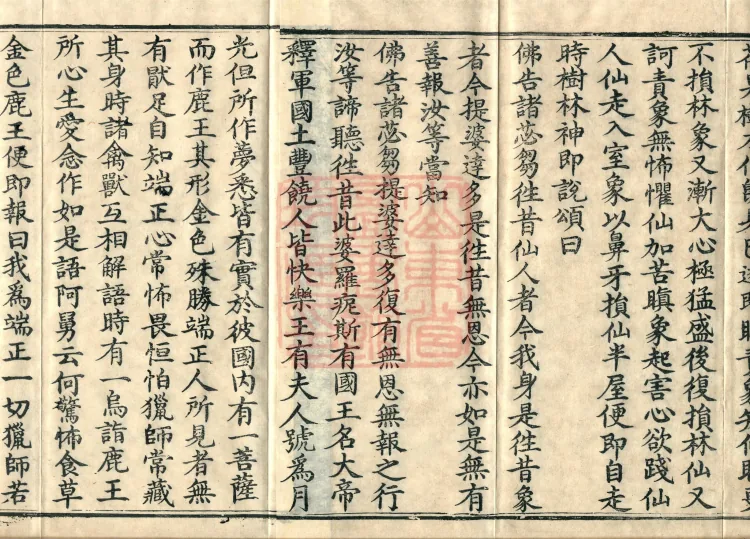 不損林象又漸大心極猛盛後復損林仙又
訶責象無怖懼仙加苦瞋象起害心欲踐仙
人仙走入室象以鼻牙損仙半屋便即自走
時樹林神即說頌曰
佛告諸苾芻徃昔仙人者今我身是徃昔象
者今提婆達多是徃昔無恩今亦如是無有
善報汝等當知
佛告諸苾芻提婆達多復有無恩無報之行
汝等諦聽徃昔此婆羅痆斯有國王名大帝
釋軍國土豐饒人皆快樂王有夫人號爲月
光但所作夢悉皆有實於彼國内有一菩薩
而作鹿王其形金色殊勝端正人所見者無
有猒足自知端正心常怖畏恒怕獵師常藏
其身時諸禽獸互相解語時有一烏詣鹿王
所心生愛念作如是語阿舅云何驚怖食草
金色鹿王便即報曰我爲端正一切獵師若